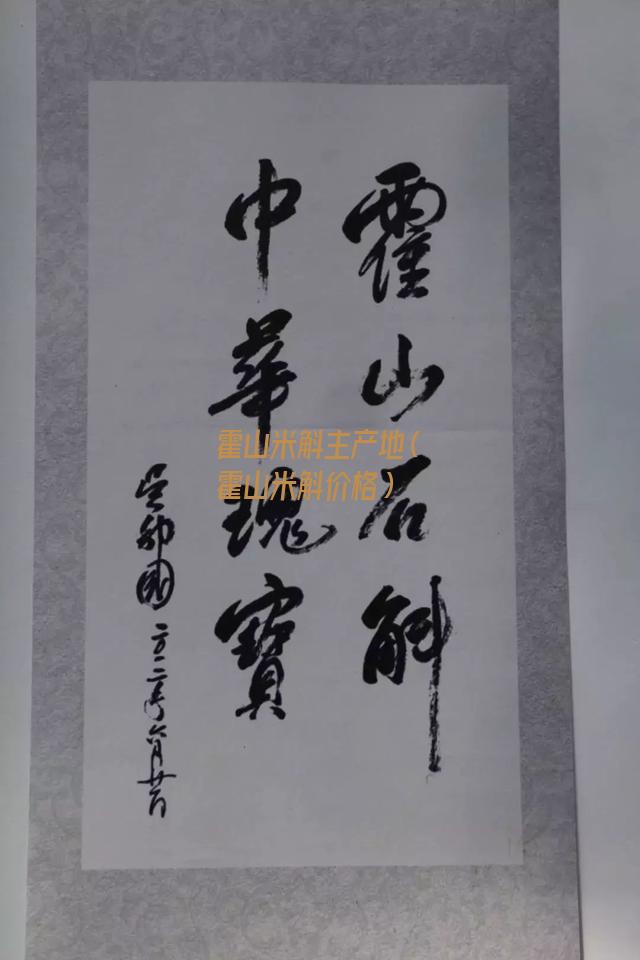 霍山石斛
中華瑰寶
吴邦國 二〇一二年六月廿一日
霍山米斛主产地(
霍山米斛价格)